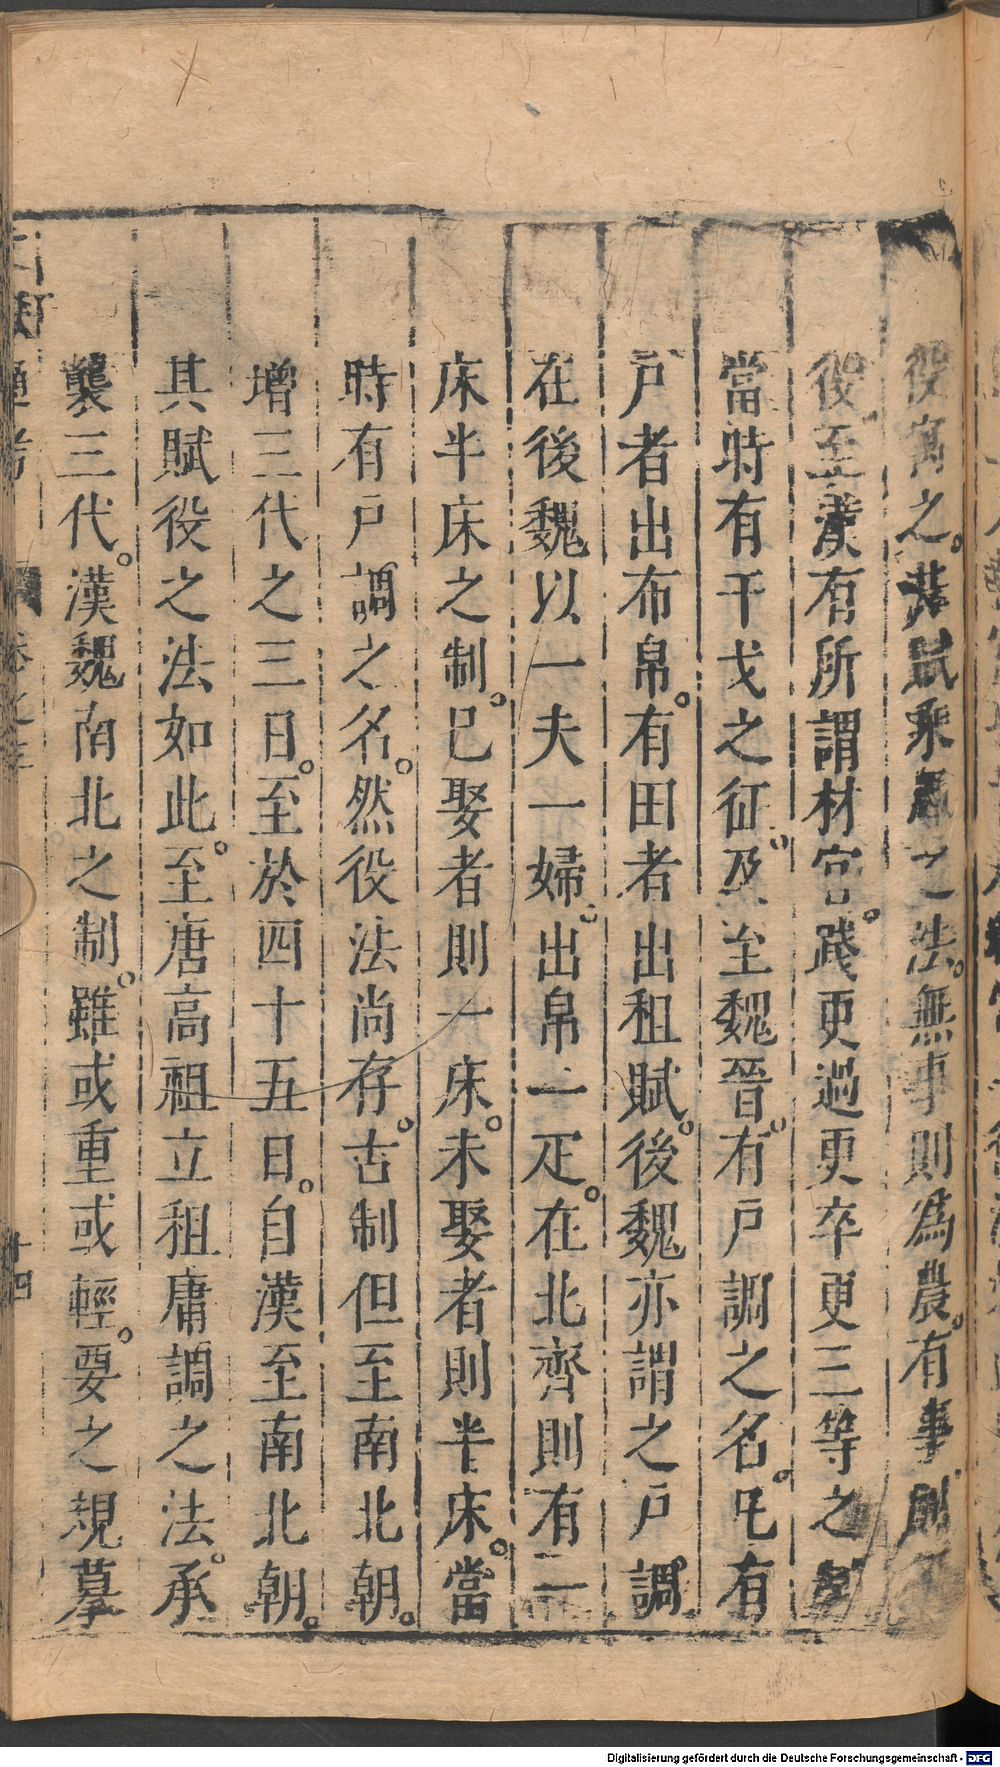 役寓之。蓋賦乘之法。無事則為農。有事則
役。至漢有所謂材官。踐更過更卒更三等之
當時有干戈之征。及至魏晉。有戸調之名。凡有
戸者出布帛。有田者出租賦。後魏亦謂之戸調
在後魏以一夫一婦。出帛一疋。在北齊則有二
床半床之制。已娶者則一床。未娶者則半床。當
時有戸調之名。然役法尚存。古制但至南北朝。
增三代之三日。至於四十五日。自漢至南北朝。
其賦役之法如此。至唐高祖立租庸調之法。承
襲三代。漢魏南北之制。雖或重或輕。要之規摹
通考 卷之三 十四
Digitalisierung gefördert durch die Deutsche Forschungsgemeinschaft - DFG